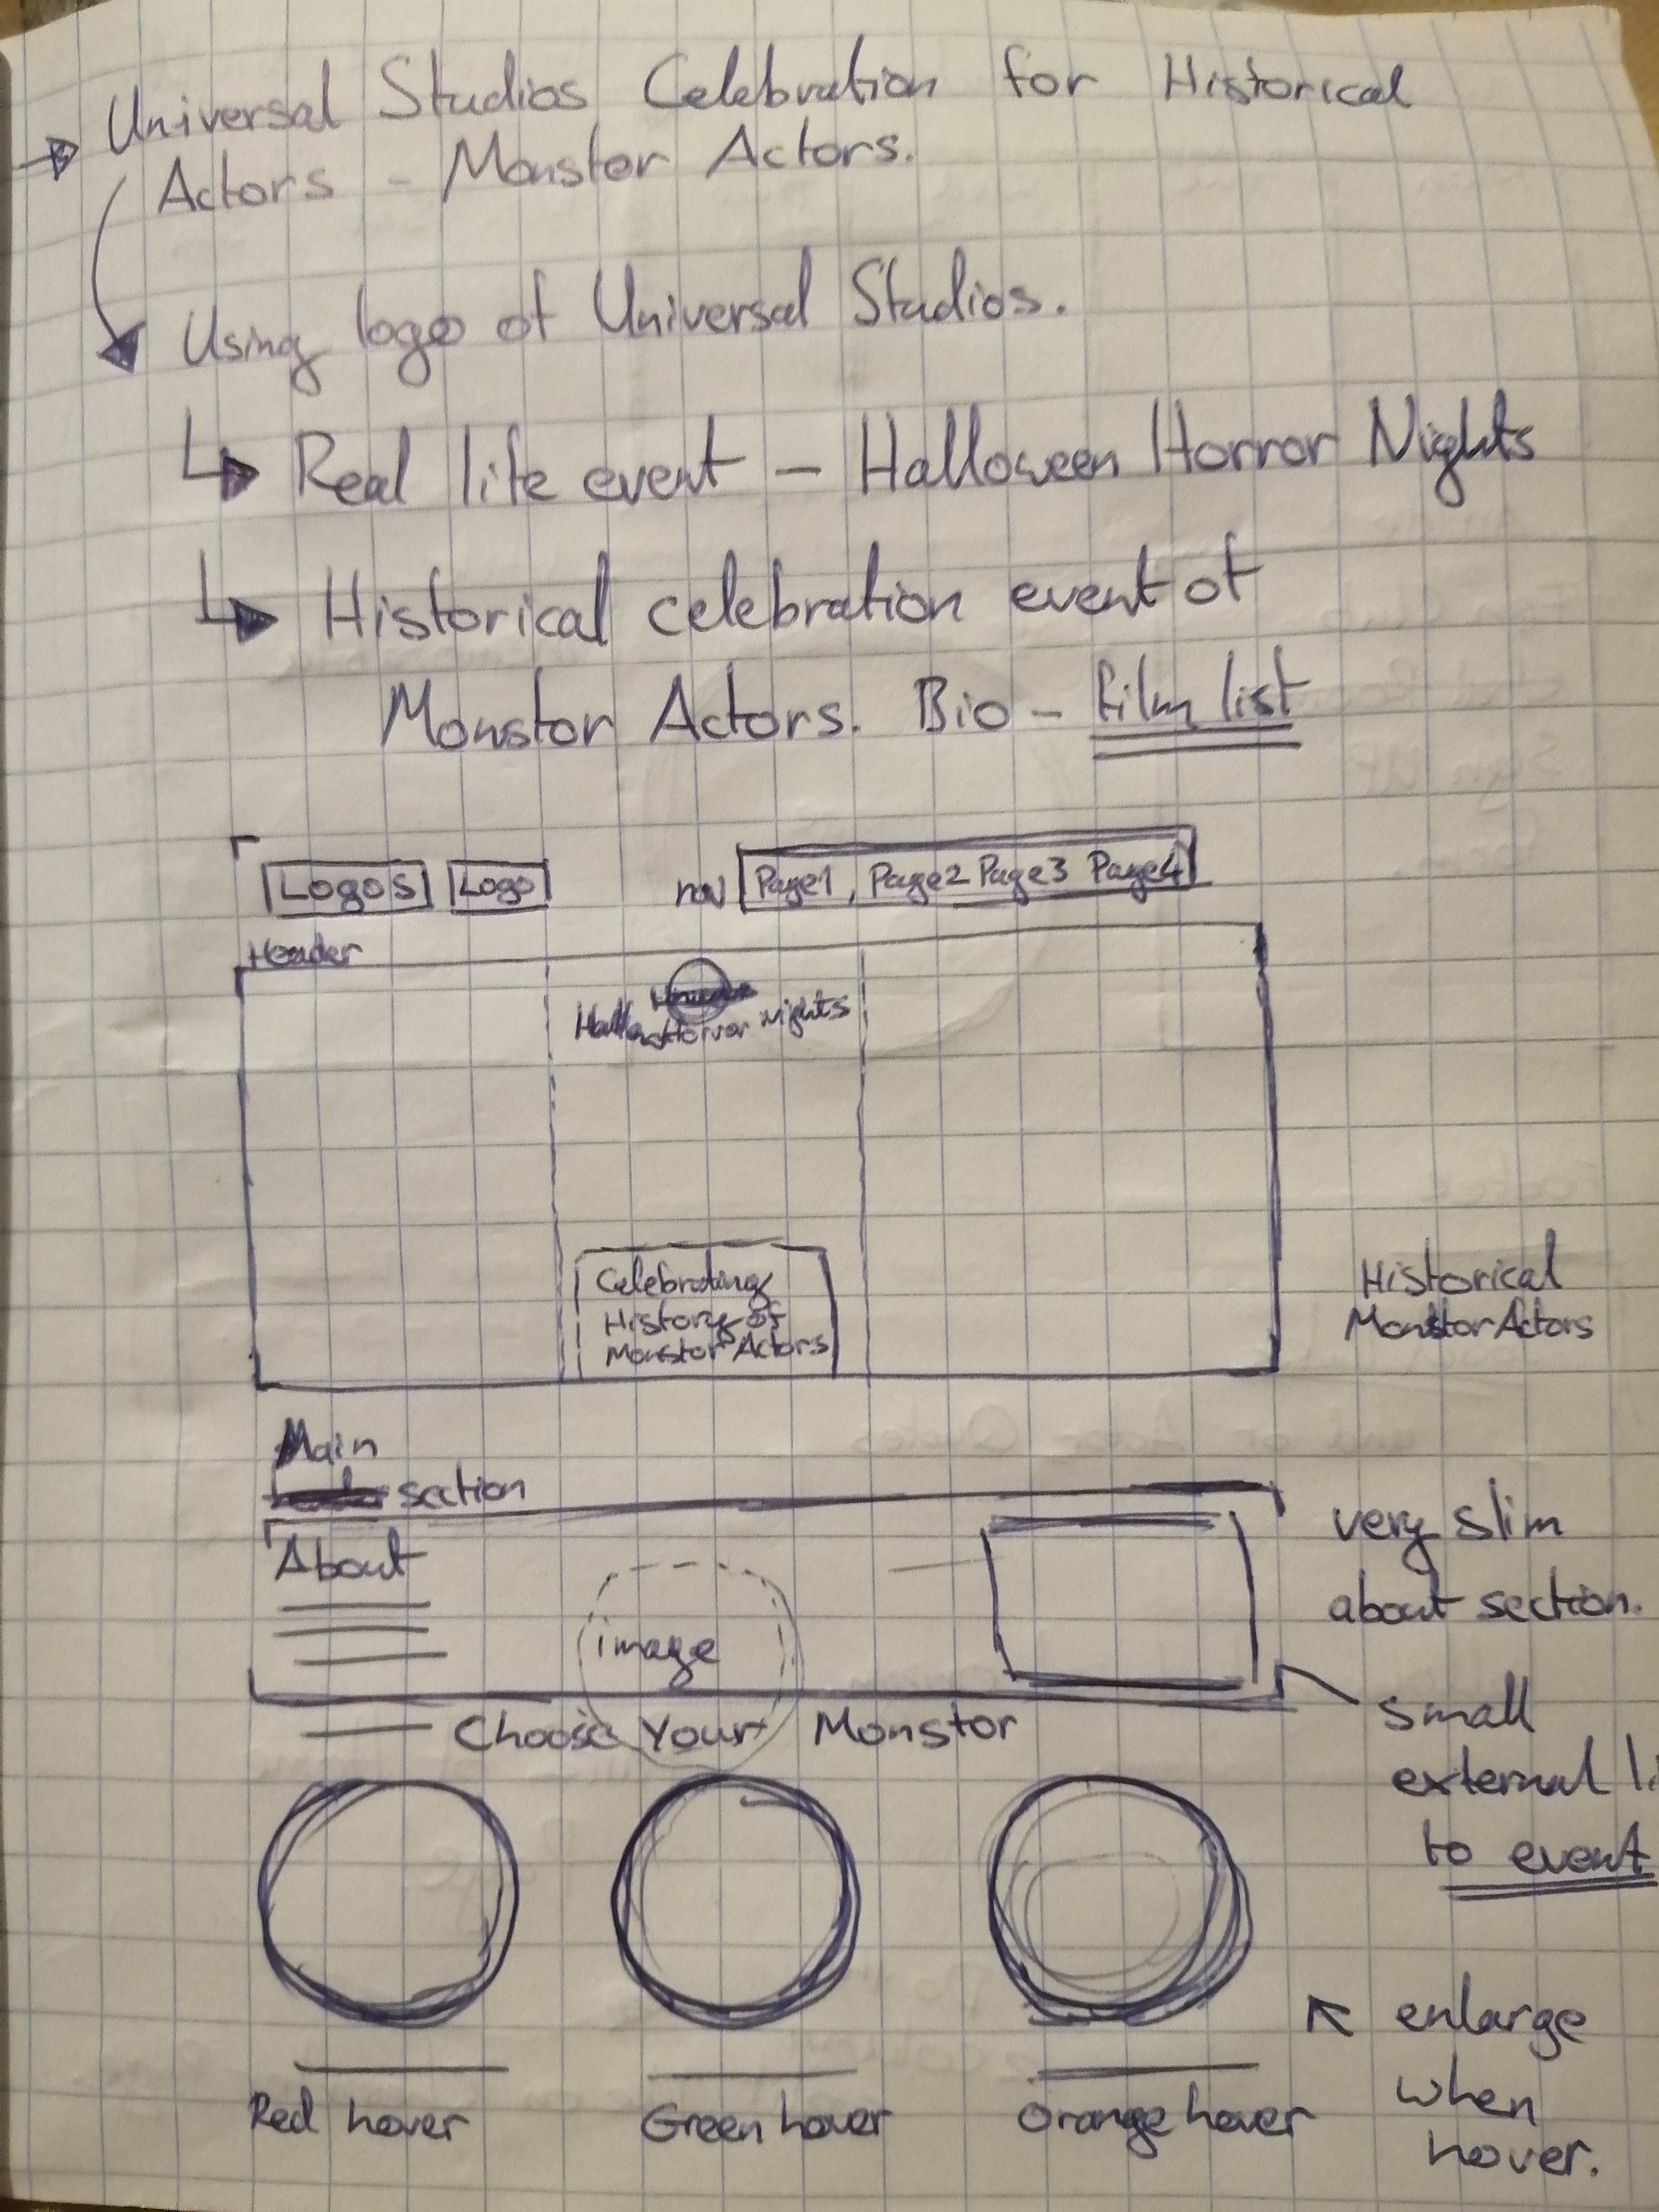 Universal Studios Celebration for Historical
Actors - Monstor Actors.
Using logo of Universal Studios.
Real life event - Halloween Horror Nights
Historical celebration event of
Monstor Actors. Bio - film list
Logos Logo nav Page1, Page2 Page3 Page4
Header
Horror nights
Celebrating
History of
Monstor Actors
Historical
Monstor Actors
Main
section
About
image
very slim
about section.
small
external
to event
Choose Your Monstor
Red hover
Green hover
Orange hover
enlarge
when
hover.